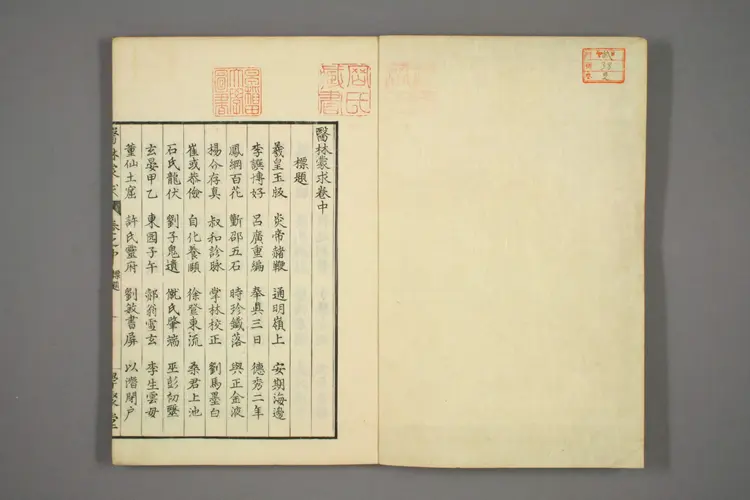 醫林蒙求卷中
標題
羲皇玉版 炎帝赭鞭 通明嶺上 安期海邊
李譔博好 呂廣重編 奉真三日 德秀二年
鳳綱百花 斷邵五石 時珍鐵落 與正金液
楊介存真 叔和診脉 孛林校正 劉馬墨白
崔或恭儉 自化養頤 徐登東流 桑君上池
石氏龍伏 劉子鬼遺 僦氏肇端 巫彭初醫
玄晏甲乙 東園子午 郭翁雪玄 李生雲母
董仙土窟 許氏靈府 劉敏書屏 以潛閉户
醫林蒙求 卷之中 標題